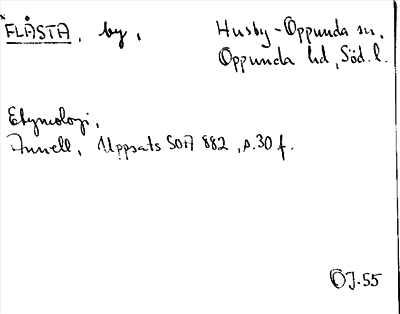 FLÅSTA, by,
Husby-Oppunda sn,
Oppunda hd, Söd. l.
Etymologi,
Annell, Uppsats SOA 882, s. 30 f.
OJ. 55